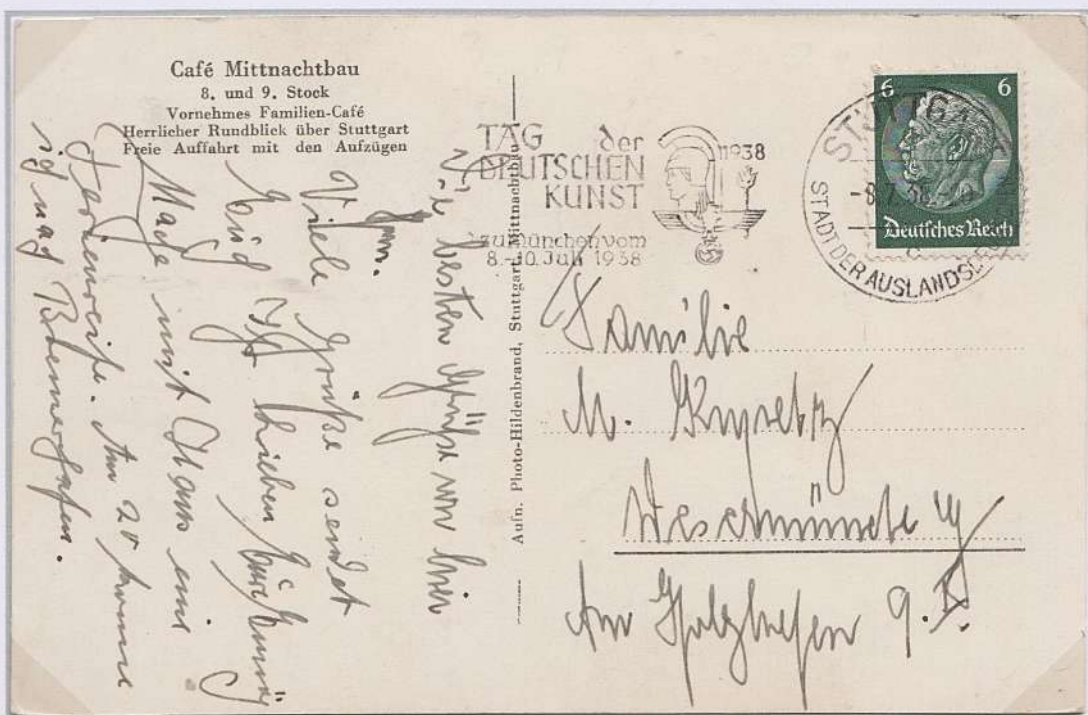 Café Mittnachtbau
8. und 9. Stock
Vornehmes Familien-Café
Herrlicher Rundblick über Stuttgart
Freie Auffahrt mit den Aufzügen
Viele Grüße sendet
Euch
Mache mit Hans eine
Ferienreise. Am 20 komme
ich nach Bremerhafen.
Die besten Grüße von hier
Aufn. Photo-Hildenbrand, Stuttgart-Mittnachtbau
TAG der
DEUTSCHEN
KUNST
1938
zu München vom
8.-10. Juli 1938
STUTTGART
-8.7.38
STADT DER AUSLANDSDEU
6 6
Deutsches Reich
Familie
M.
Wesermünde G
Am Holzhafen 9. II.